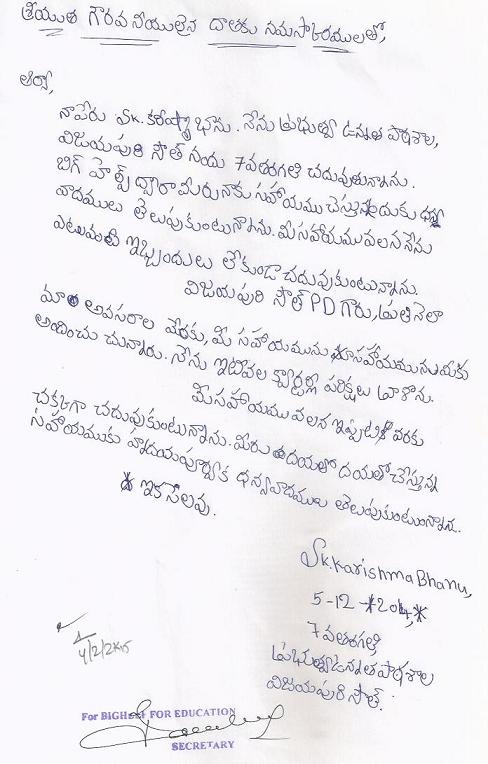 శ్రీయుత గౌరవ నీయులైన దాతకు నమస్కారములతో,
ఆర్యా,
నాపేరు Sk. కరీష్మా భాను. నేను ప్రభుత్వ ఉన్నత పాఠశాల,
విజయపురి సౌత్ నందు 7వతరగతి చదువుతున్నాను.
బిగ్ హెల్ప్ ద్వారా మీరు నాకు సహాయము చేస్తున్నందుకు ధన్య
వాదములు తెలుపుకుంటున్నాను. మీ సహాయము వలన నేను
ఎటువంటి ఇబ్బందులు లేకుండా చదువుకుంటున్నాను.
విజయపురి సౌత్ PD గారు, ప్రతి నెలా
మా అవసరాల మేరకు, మీ సహాయమును
అందించు చున్నారు. నేను ఇటీవల క్వార్టర్లీ పరీక్షలు వ్రాశాను.
మీ సహాయము వలన ఇప్పటికీ వరకు
చక్కగా చదువుకుంటున్నాను. మీరు దయతో చేస్తున్న
సహాయముకు హృదయపూర్వక ధన్యవాదములు తెలుపుకుంటున్నాను.
ఇక సెలవు.
Sk. Karishma Bhanu,
5-12-2014,
7వతరగతి,
ప్రభుత్వ ఉన్నత పాఠశాల
విజయపురి సౌత్.
For BIGHELP FOR EDUCATION
SECRETARY